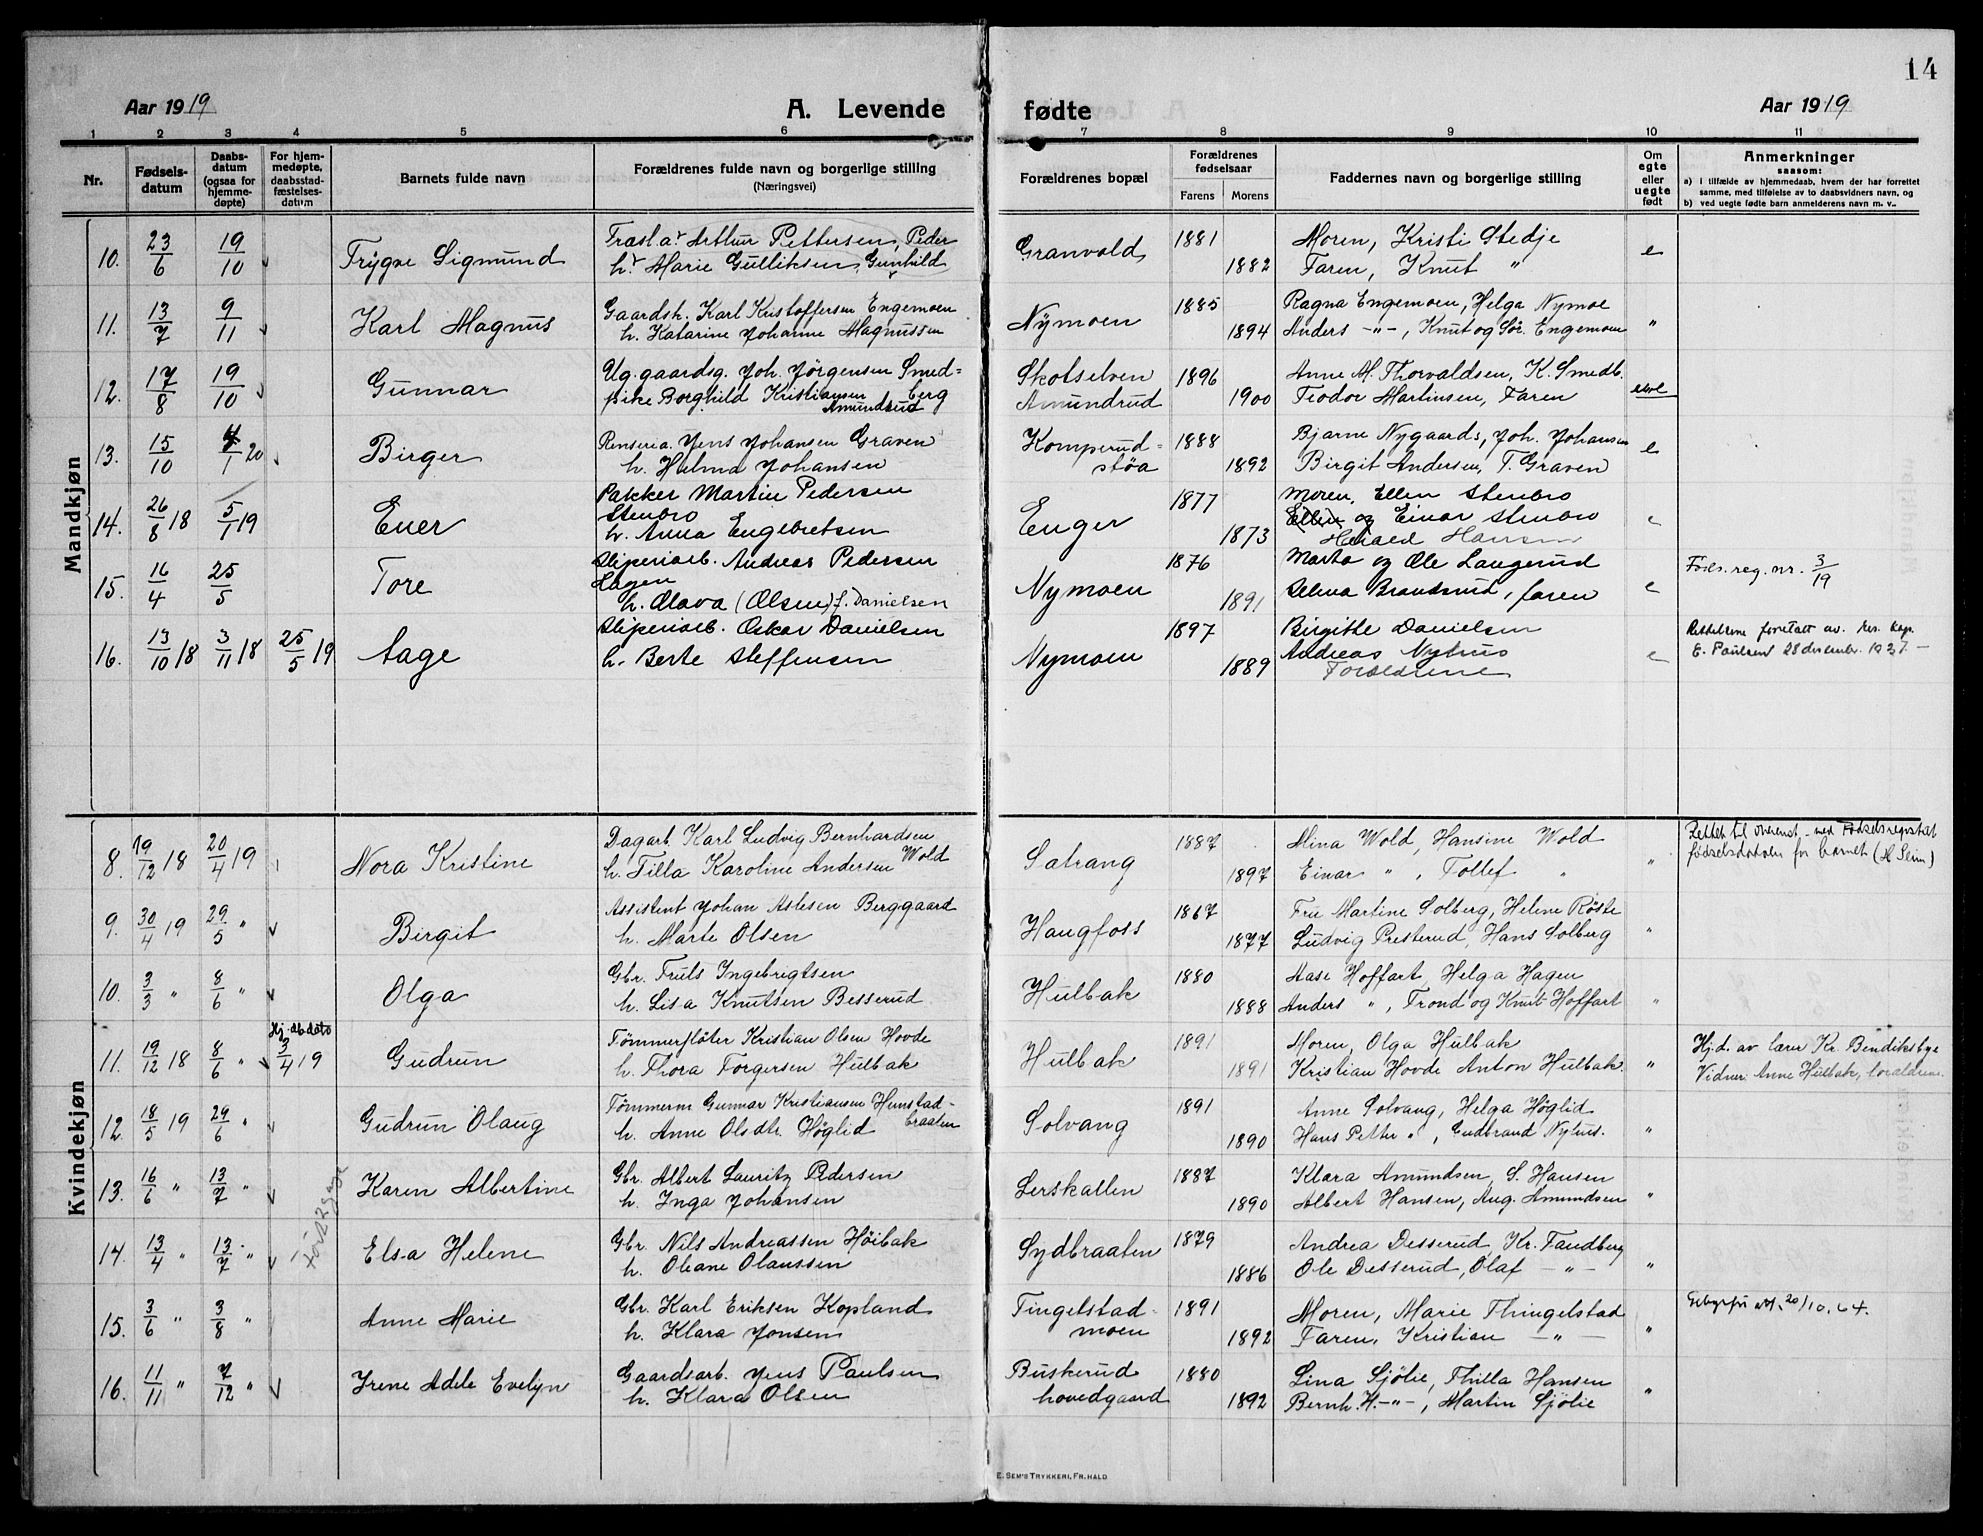 14
Aar 1919
A. Levende
fødte
Aar 1919
1 2 3 4 5 6 7 8 9 10 11
Nr.
Fødsels-
datum
Daabs-
datum
(ogsaa for
hjemme-
døpte)
For hjem-
medøpte,
daabsstad-
fæstelses-
datum
Barnets fulde navn
Forældrenes fulde navn og borgerlige stilling
(Næringsvei)
Forældrenes bopæl
Forældrenes
fødselsaar
Farens Morens
Faddernes navn og borgerlige stilling
Om
egte
eller
uegte
født
Anmerkninger
saasom:
a) i tilfælde av hjemmedaab, hvem der har forrettet
samme, med tilføielse av to daabsvidners navn, og
b) ved uegte fødte barn anmelderens navn m. v.
Mandkjøn
10. 23/6 19/10 Trygve Sigmund
Træsl.ar Arthur Pettersen, Peder
hr Marie Gulliksen, Gunhild
Granvold 1881 1882
Moren, Kristi Stedje
Faren, Knut "
e
11. 13/7 9/11 Karl Magnus
Gaardsk. Karl Kristoffersen Engemoen
h. Katarine Johanne Magnussen
Nymoen 1885 1894
Ragna Engemoen, Helga Nymoe
Anders -"-, Knut og Sør. Engemoen
"
12. 17/8 19/10 Gunnar
Ug. gaardsg. Joh. Jørgensen Smed-
berg
pike Borghild Kristiansen
Amundrud
Skotselven
Amundrud
1896 1900
Anne M. Thorvaldsen, K. Smedb.
Teodor Martinsen, Faren
13. 15/10 4/1 20 Birger
Renseria. Jens Johansen Graven
h. Helma Johansen
Komperud-
støa
1888 1892
Bjarne Nygaards, Joh. Johansen
Birgit Andersen, T. Graven
e
14. 26/8 18 5/1 19 Ener
Pakker Martin Pedersen
Stenbro
h. Anna Engebretsen
Enger 1877 1873
Moren, Ellen Stenbro
Ellen og Einar Stenbro
Harald Hansen
e
15. 16/4 25/5 Tore
Sliperiarb. Andreas Pedersen
Hagen
h. Olava (Olsen) f. Danielsen
Nymoen 1876 1891
Marta og Ole Langerud
Selma Brandsrud, faren
e
Føds. reg. nr. 3/19
16. 13/10 18 3/11 18 25/5 19 Aage
Sliperiarb. Oskar Danielsen
h. Berte Steffensen
Nymoen 1897 1889
Birgitte Danielsen
Andreas Nytrus
Forældrene
e
Rettelsene foretatt av res. kap.
E. Paulsen 28 desember 1937. —
Kvindekjøn
8. 19/12 18 20/4 19 Nora Kristine
Dagarb. Karl Ludvig Bernhardsen
Wold
h. Tilla Karoline Andersen
Satrang 1887 1897
Mina Wold, Hansine Wold
Einar " , Tollef "
"
Rettet til overenst. med Fødselsregistret
fødselsdatoen for barnet (H Seim)
9. 30/4 19 29/5 " Birgit
Assistent Johan Aslesen Berggaard
h. Marte Olsen
Haugfoss 1867 1877
Fru Martine Solberg, Helene Røste
Ludvig Presterud, Hans Solberg
"
10. 3/3 " 8/6 " Olga
Gbr. Truls Ingebrigtsen
h. Lisa Knutsen Besserud
Hulbak 1880 1888
Aase Hoffart, Helga Hagen
Anders " , Trond og Knut Hoffart
"
Hj.db.dato
11. 19/12 18 8/6 " 3/4 19 Gudrun
Tømmerfløter Kristian Olsen Hovde
h. Thora Torgersen Hulbak
Hulbak 1891 1891
Moren, Olga Hulbak
Kristian Hovde Anton Hulbak.
"
Hj.d. av lærer Kr. Bendiksbye
Vidner: Anne Hulbak, forældrene.
12. 18/5 19 29/6 " Gudrun Olaug
Tømmerm Gunnar Kristiansen Hunstad-
braaten
h. Anne Olsdtr. Høglid
Solvang 1891 1890
Anne Solvang, Helga Høglid
Hans Petter " , Gudbrand Nytrus.
"
13. 16/6 " 13/7 " Karen Albertine
Gbr. Albert Lauritz Pedersen
h. Inga Johansen
Lerskallen 1887 1890
Klara Amundsen, S. Hansen
Albert Hansen, Aug. Amundsen
"
14. 13/4 " 13/7 " Elsa Helene
Gbr. Nils Andreassen Høibak
h. Oleane Olaussen
Sydbraaten 1879 1886
Andrea Desserud, Kr. Tandberg
Ole Desserud, Olaf -"-
"
15. 3/6 " 3/8 " Anne Marie
Gbr. Karl Eriksen Kopland
h. Klara Jonsen
Tingelstad-
moen
1891 1892
Moren, Marie Thingelstad
Faren, Kristian -"-
"
20/10. 64.
16. 11/11 " 7/12 " Irene Adele Evelyn
Gaardsarb. Jens Paulsen
h. Klara Olsen
Buskerud
hovedgaard
1880 1892
Lina Sjølie, Thilla Hansen
Bernh. H. -"-, Martin Sjölie
"
E. SEM'S TRYKKERI, FR.HALD